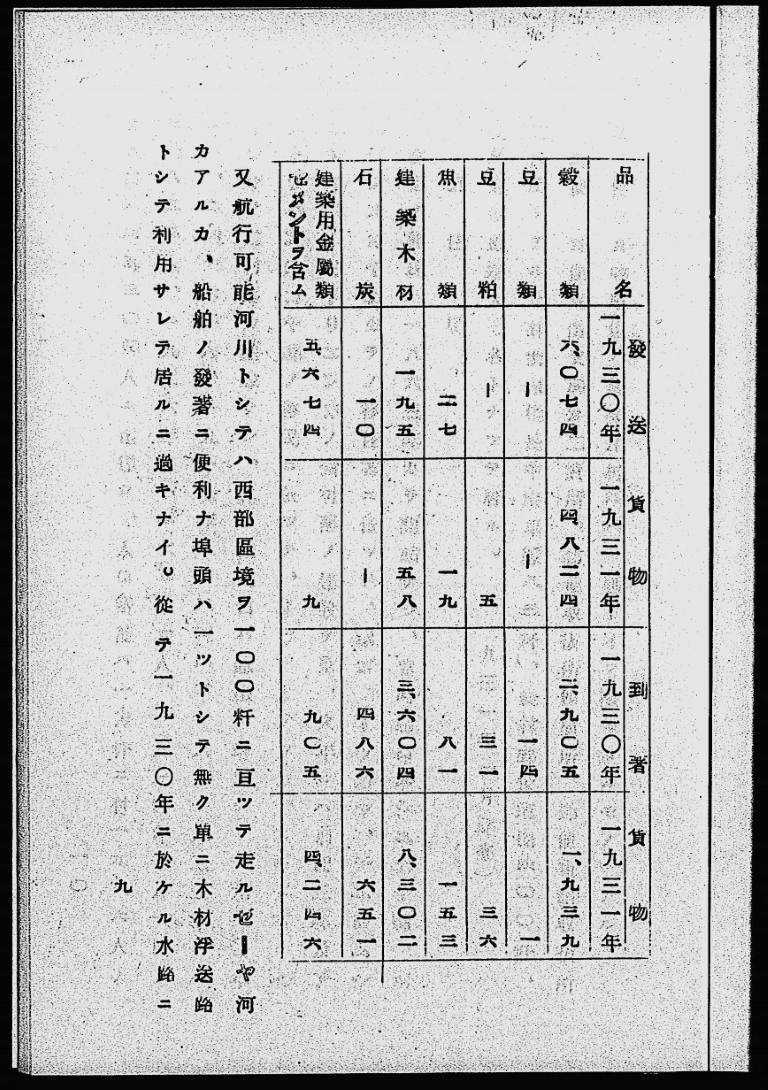 品名 發送貨物 到著貨物
一九三〇年 一九三一年 一九三〇年 一九三一年
穀類 六、〇七四 四、八二四 二、九〇五 一、九三九
豆類 ー ー 一四 一
豆粕 ー 五 三一 三六
魚類 二七 一九 八一 一五三
建築木材 一九五 五八 三、六〇四 八、三〇二
石炭 一〇 ー 四八六 六五一
建築用金屬類 五、六七四 九 九〇五 四、二四六
セメントヲ含ム
又航行可能河川トシテハ西部區境ヲ一〇〇粁ニ亘ツテ走ルゼーヤ河
カアルカ、船舶ノ發著ニ便利ナ埠頭ハ一ツトシテ無ク單ニ木材浮送路
トシテ利用サレテ居ルニ過キナイ。從テ一九三〇年ニ於ケル水路ニ
九